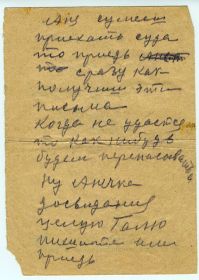 Аня сумеет
приехать суда
то приедь
то сразу как
получиш эти
письма
Когда не удастся
то как нибудь
будем переписоваться
Ну Анечка
досвидания
целую Галю
пишите или
приедь